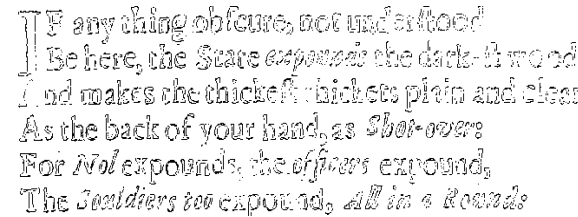 IF any thing obſcure, not underſtood
Be here, the State expounds the dark-ſt wood
And makes the thickeſt thickets plain and clear
As the back of your hand, as Shot-over:
For Nol expounds, the officers expound,
The Souldiers too expound, All in a Round: